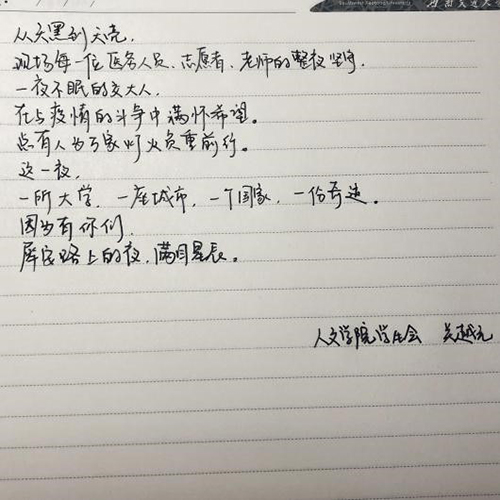 西南交通大
从天黑到天亮，
现场每一位医务人员、志愿者、老师的整夜坚守，
一夜不眠的交大人，
在与疫情的斗争中满怀希望。
总有人为万家灯火负重前行。
这一夜，
一所大学，一座城市，一个国家，一份奇迹。
因为有你们，
犀安路上的夜，满目星辰。
人文学院学生会 吴越元